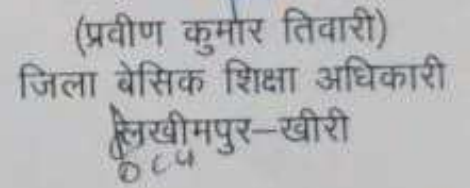 (प्रवीण कुमार तिवारी)
जिला बेसिक शिक्षा अधिकारी
लखीमपुर-खीरी